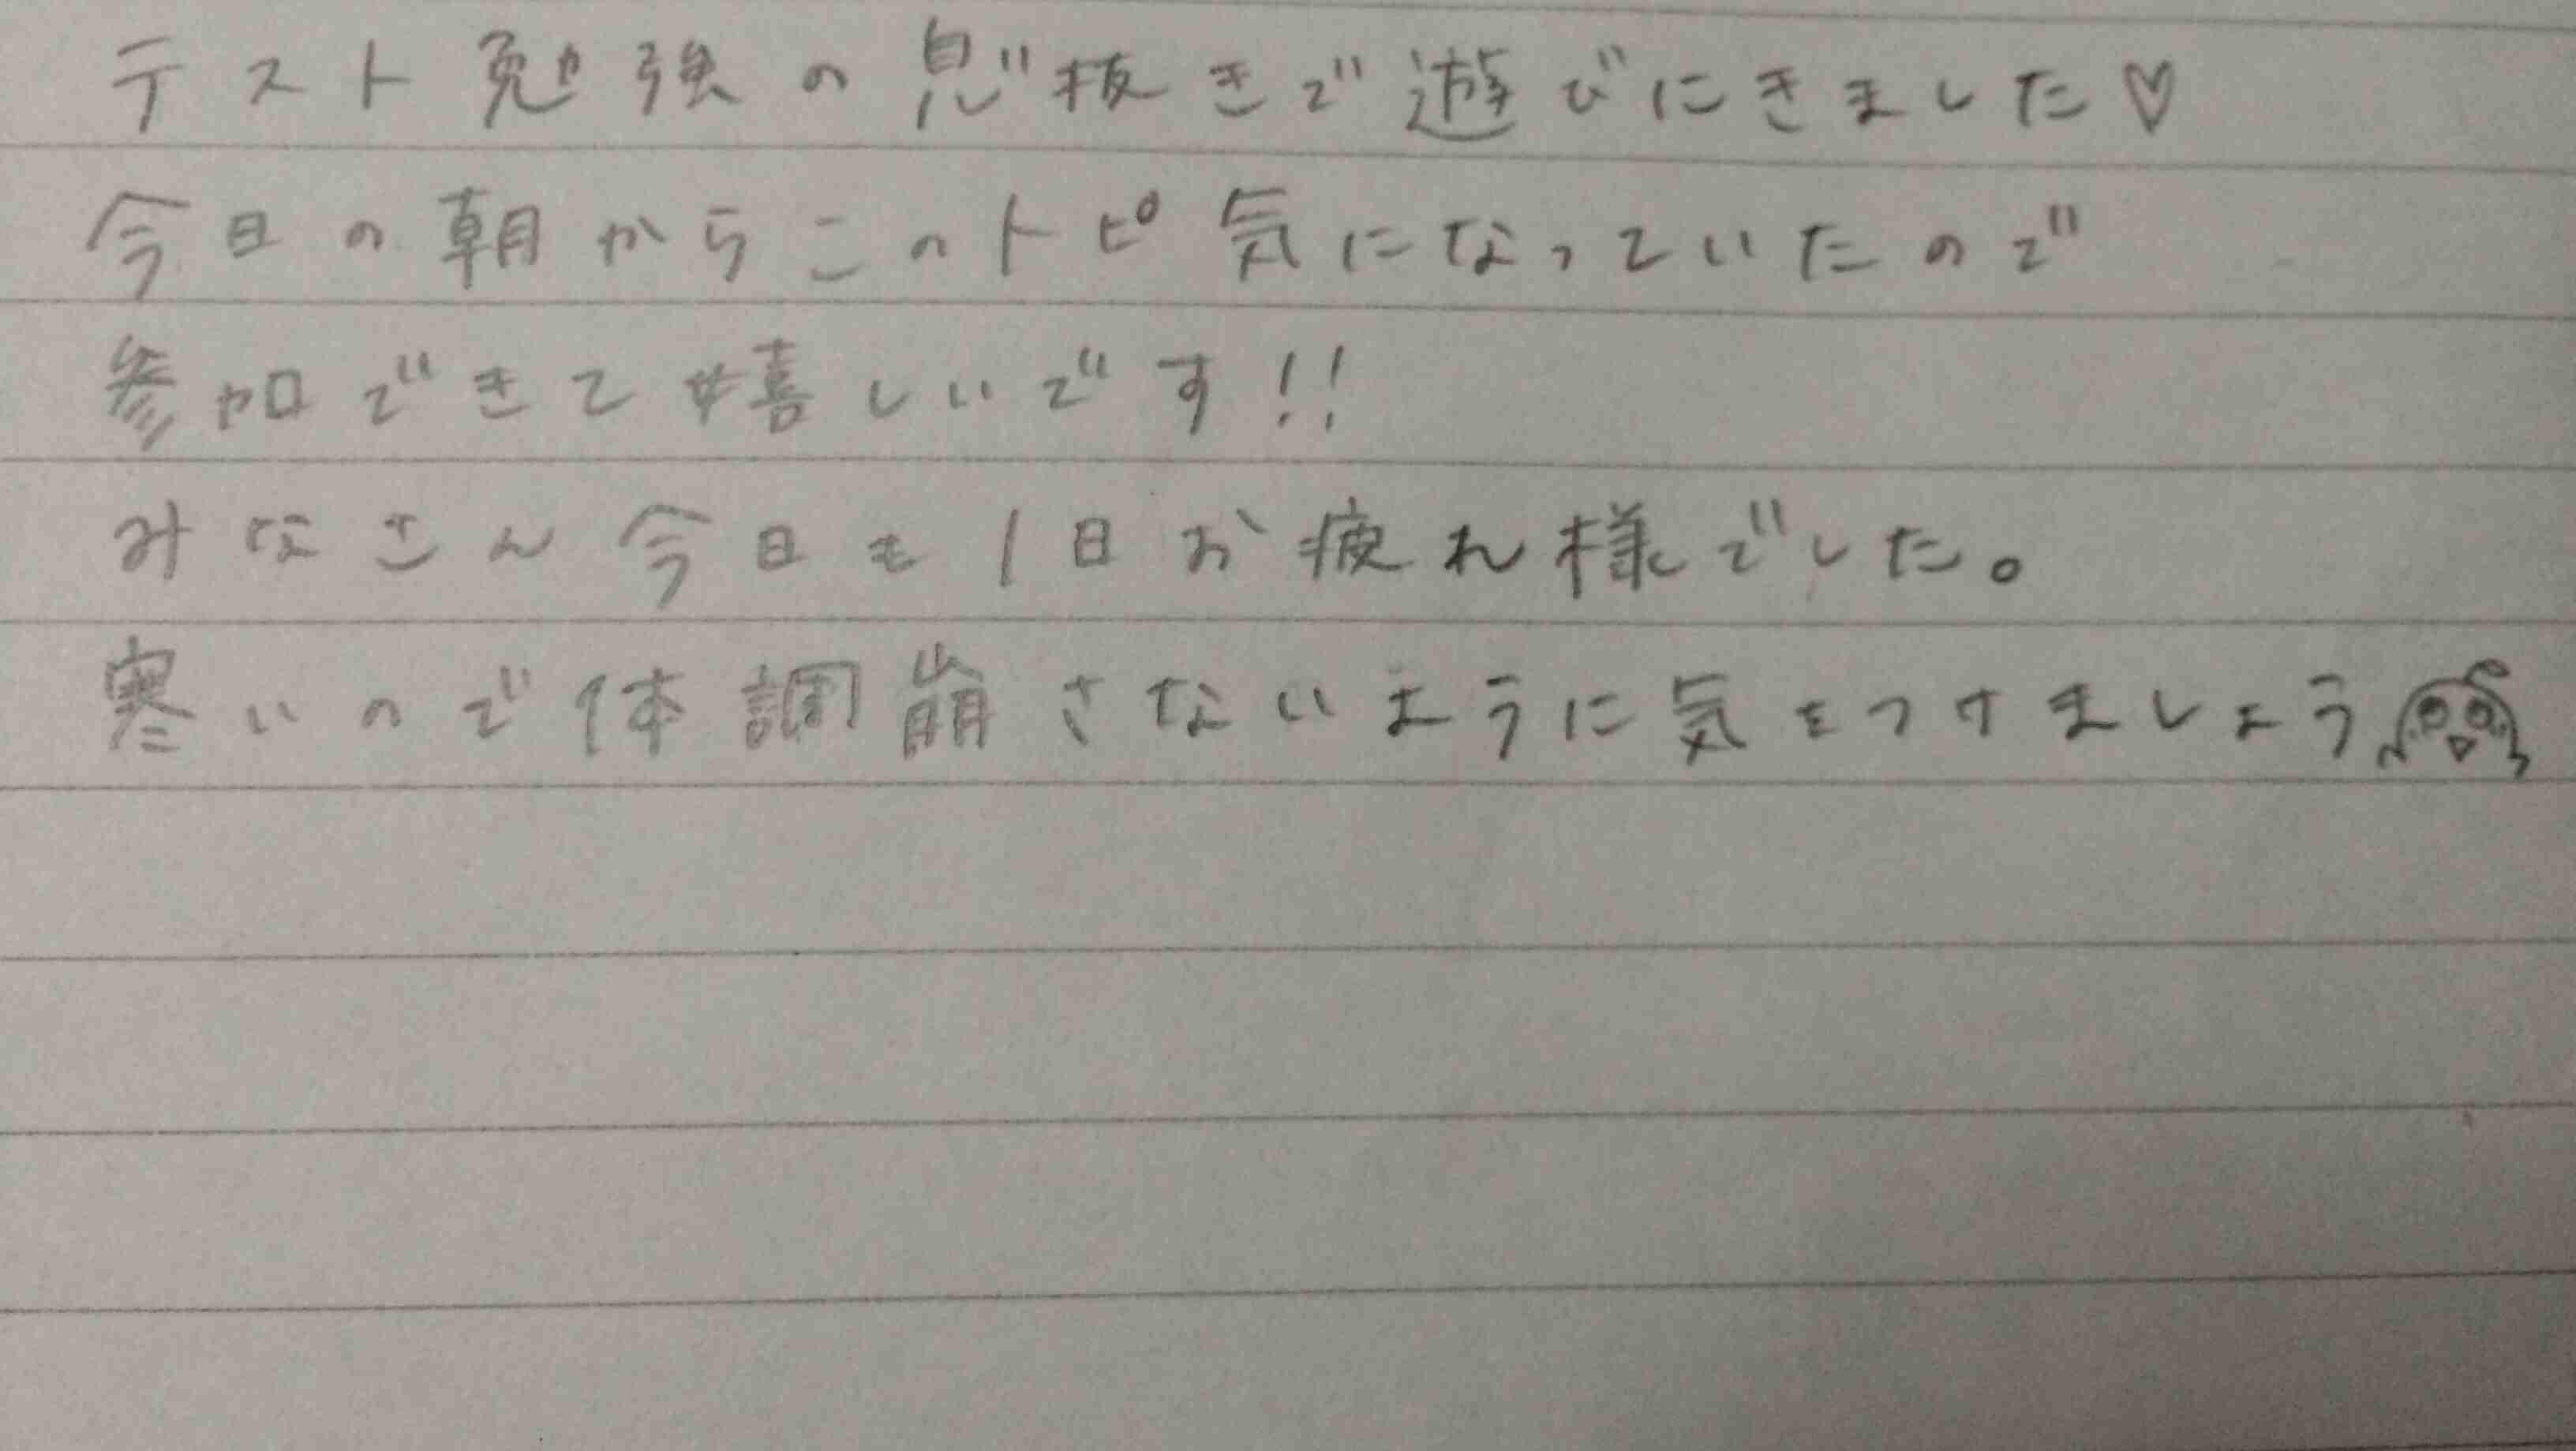 テスト勉強の息抜きで遊びにきました♡
今日の朝からこのトピ気になっていたので
参加できて嬉しいです!!
みなさん今日も1日お疲れ様でした。
寒いので体調崩さないように気をつけましょう